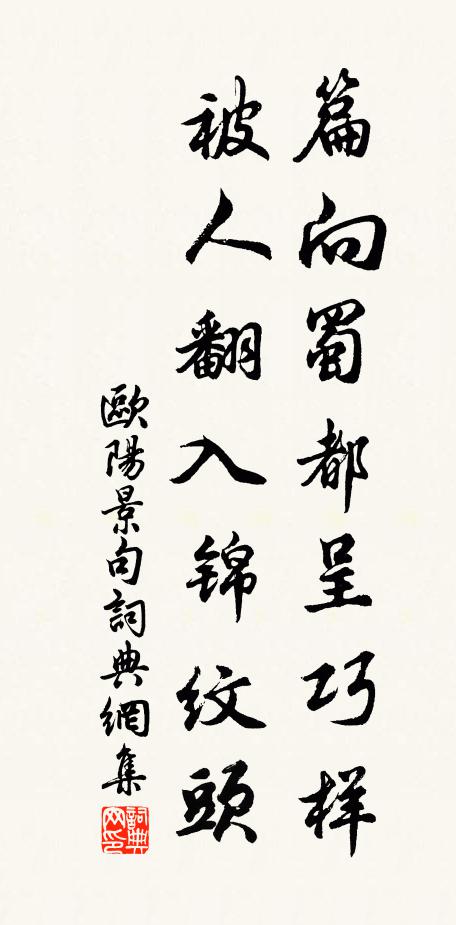 篇向蜀都呈巧样
被人翻入锦纹頭
歐陽景句詞典網集
詞典网印